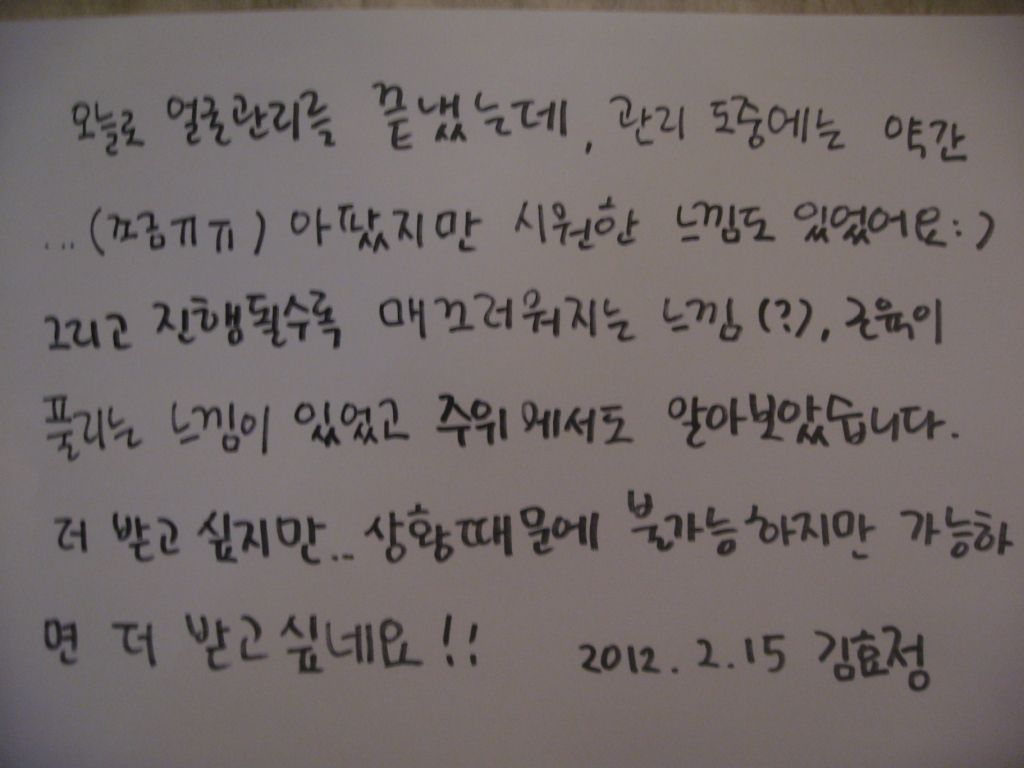 오늘로 얼굴관리를 끝냈는데, 관리 도중에는 약간
...(쪼금ㅠㅠ) 아팠지만 시원한 느낌도 있었어요:)
그리고 진행될수록 매끄러워지는 느낌(?), 근육이
풀리는 느낌이 있었고 주위에서도 알아보았습니다.
더 받고싶지만.. 상황때문에 불가능하지만 가능하
면 더 받고싶네요!! 2012.2.15 김효정